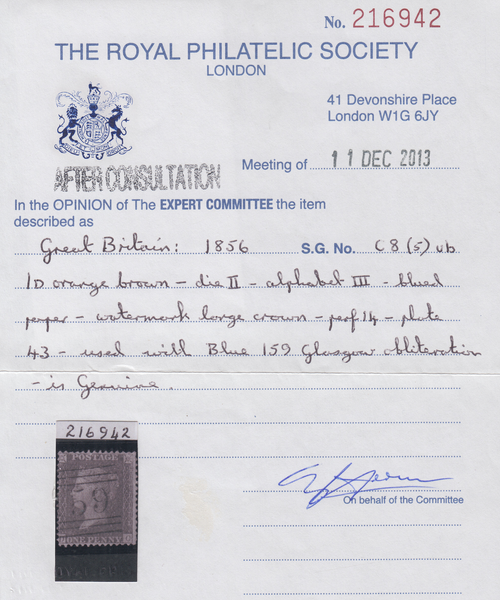 No. 216942
THE ROYAL PHILATELIC SOCIETY
LONDON
41 Devonshire Place
London W1G 6JY
AFTER CONSULTATION
Meeting of 11 DEC 2013
In the OPINION of The EXPERT COMMITTEE the item
described as
Great Britain: 1856 S.G. No. C8(5)ub
1D orange brown - die II - alphabet III - blued
paper - watermark large crown - perf 14 - plate
43 - used with Blue 159 Glasgow obliteration
- is Genuine.
216942
POSTAGE
59
ONE PENNY
On behalf of the Committee